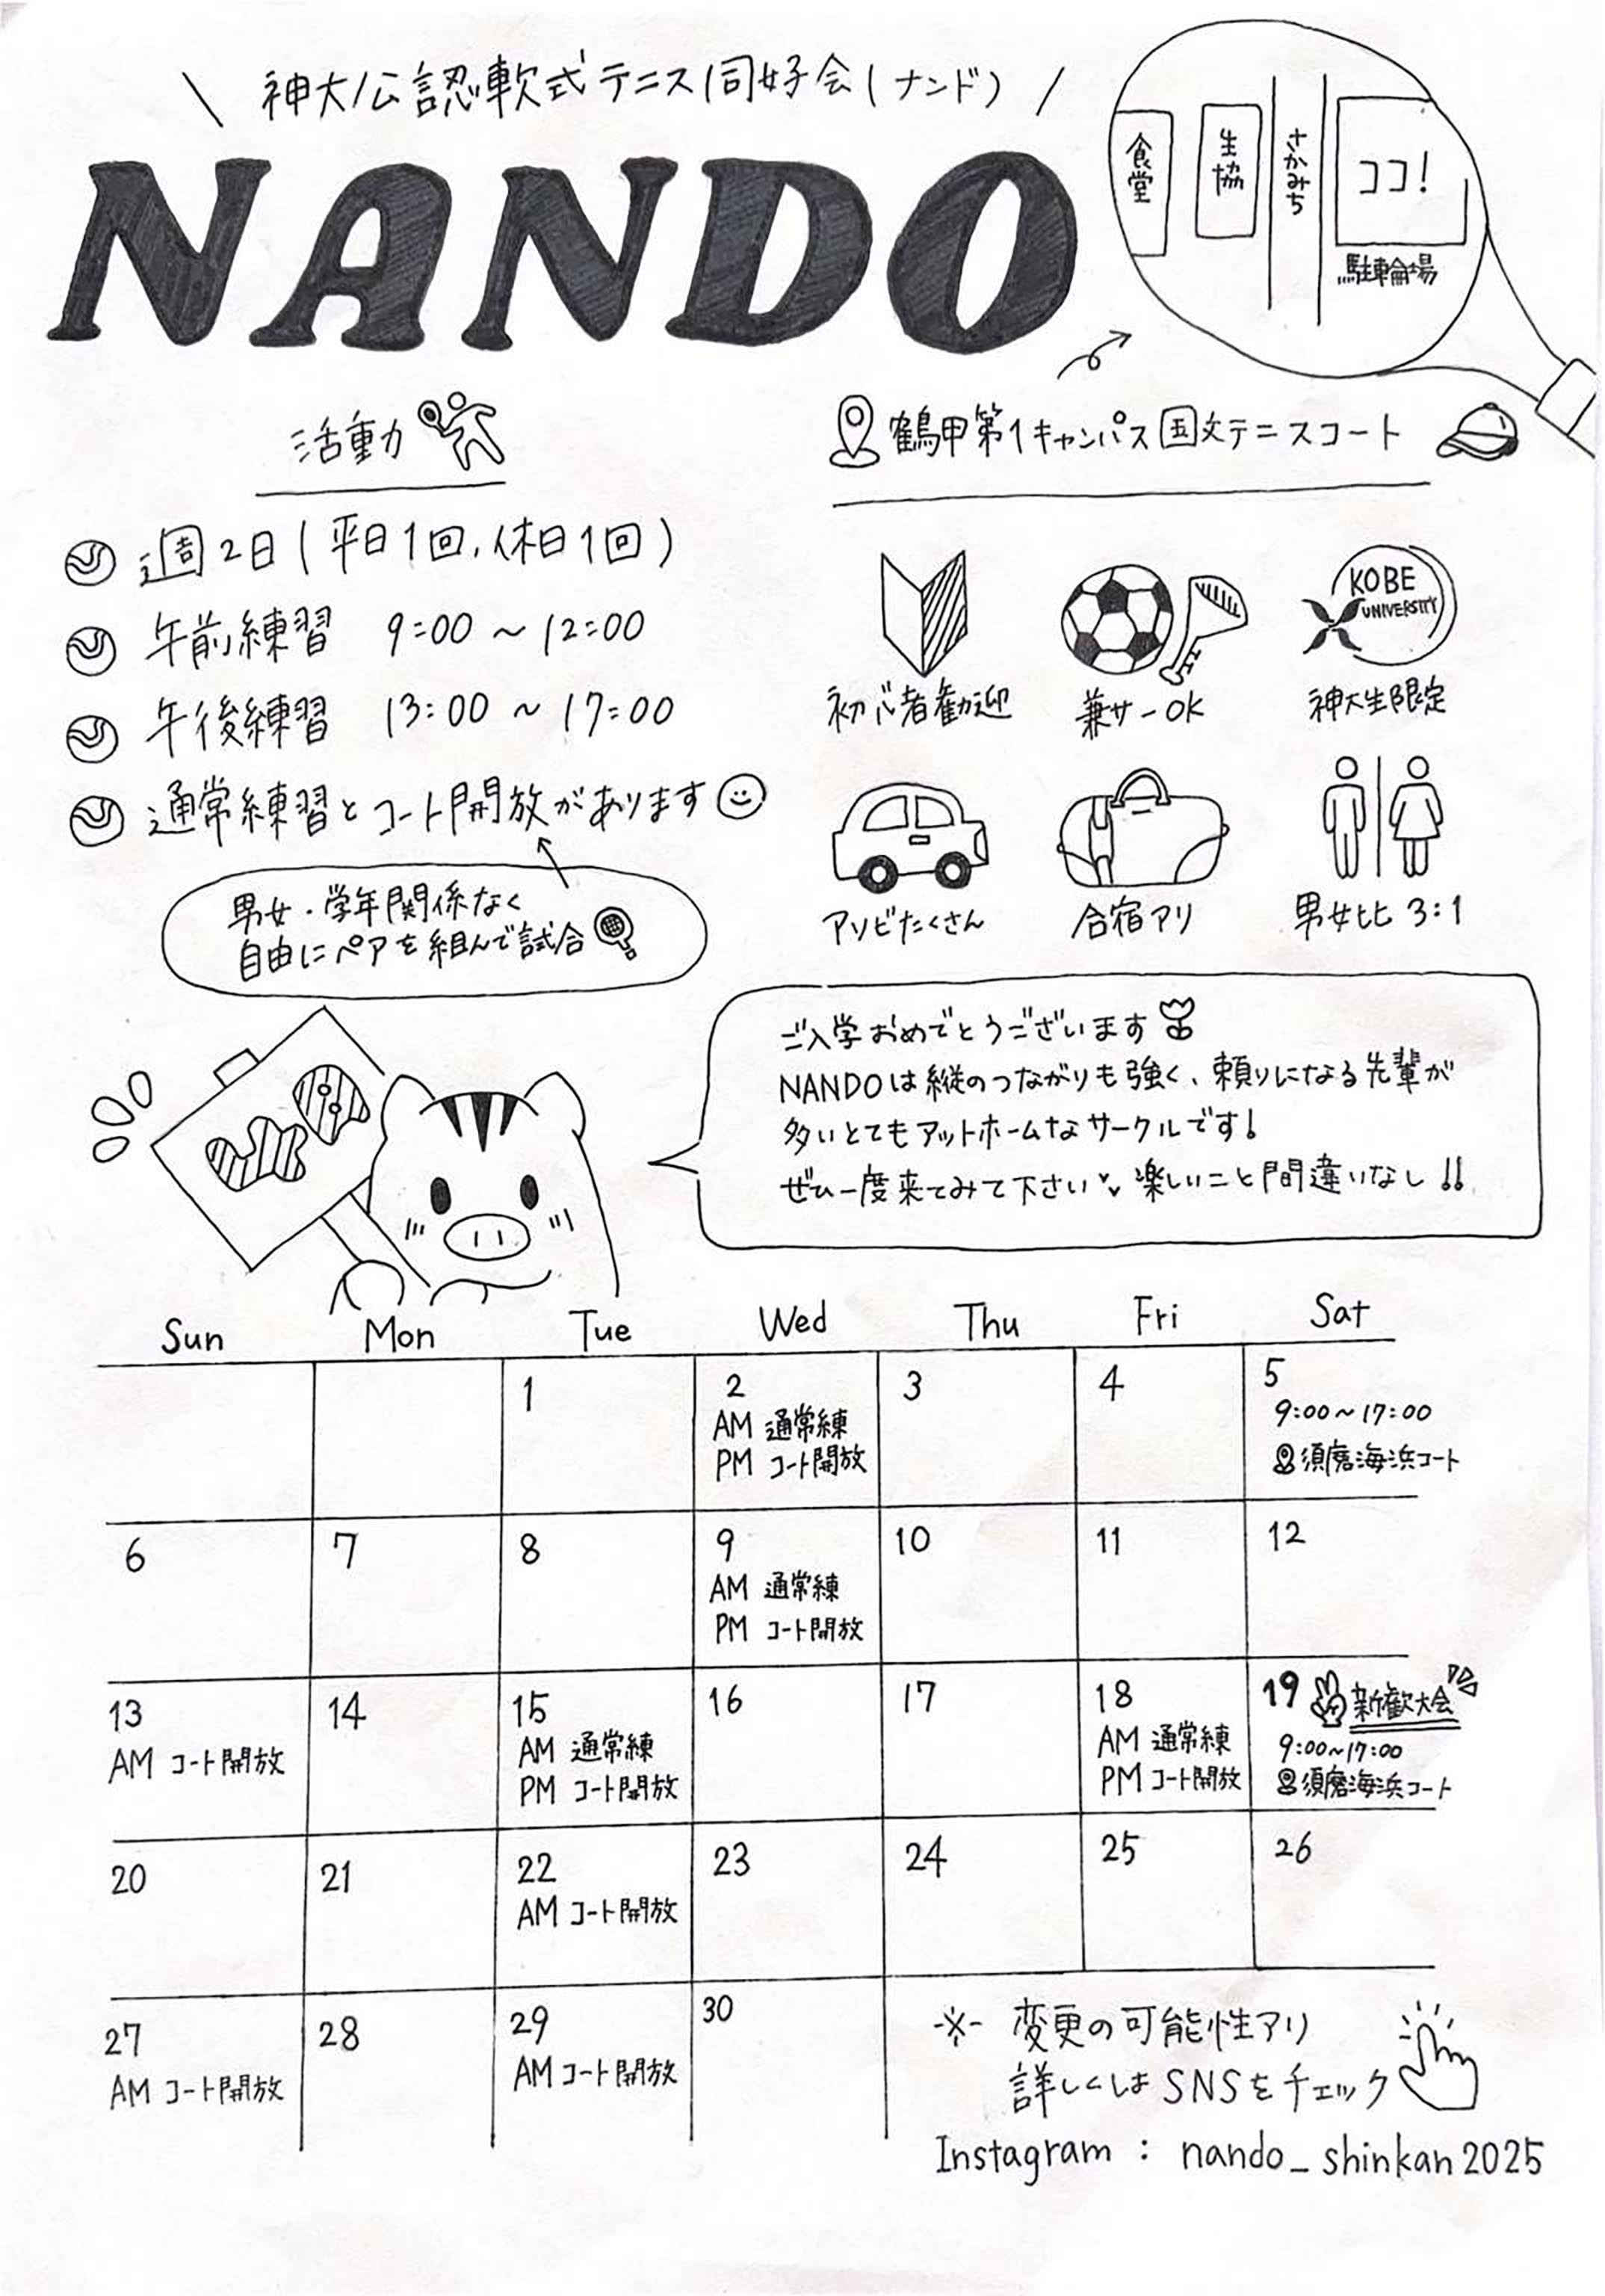 神大公認軟式テニス同好会(ナンド)
NANDO
食堂
生協
さかみち
ココ!
駐輪場
活動
鶴甲第1キャンパス国文テニスコート
週2日(平日1回,休日1回)
午前練習 9:00~12:00
午後練習 13:00~17:00
通常練習とコート開放があります
男女・学年関係なく
自由にペアを組んで試合
初心者勧迎
兼サーOK
KOBE
UNIVERSITY
神大生限定
アソビたくさん
合宿アリ
男女比 3:1
ご入学おめでとうございます
NANDOは縦のつながりも強く、頼りになる先輩が
多いとてもアットホームなサークルです!
ぜひ一度来てみて下さい 楽しいこと間違いなし!!
Sun Mon Tue Wed Thu Fri Sat
1
2
AM 通常練
PM コート開放
3
4
5
9:00~17:00
須磨海浜コート
6
7
8
9
AM 通常練
PM コート開放
10
11
12
13
AM コート開放
14
15
AM 通常練
PM コート開放
16
17
18
AM 通常練
PM コート開放
19 新歓大会
9:00~17:00
須磨海浜コート
20
21
22
AM コート開放
23
24
25
26
27
AM コート開放
28
29
AM コート開放
30
※ 変更の可能性アリ
詳しくはSNSをチェック
Instagram : nando_shinkan2025